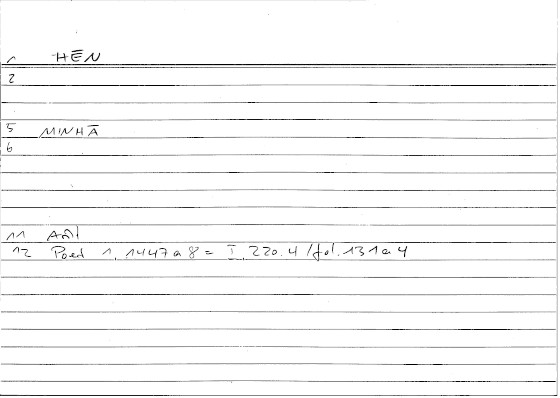 1 HĒN
2
5 MINHĀ
6
11 Arist
12 Poet 1, 1447a8 = I, 220.4 / fol. 131a4